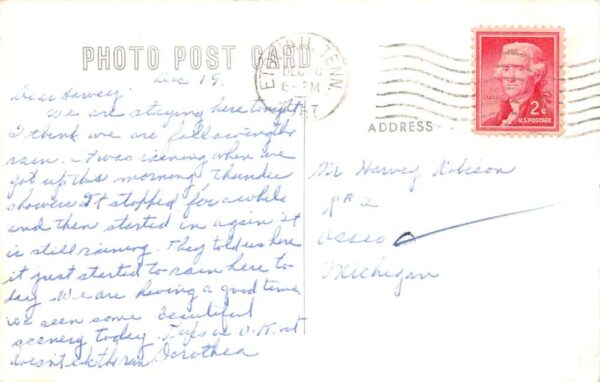 PHOTO POST CARD
TENN.
DEC
M
Dec 19.
Dear Harvey,
We are staying here tonight
I think we are following the
rain. It was raining when we
got up this morning, thunder
showers It stopped for a while
and then started in again It
is still raining. They told us here
it just started to rain here to-
day. We are having a good time
we seen some beautiful
scenery today. is O.K. 
doesn't like the rain Dorothea
2¢
U.S. POSTAGE
ADDRESS
Mr Harvey Robison
R# 2
Osseo
Michigan